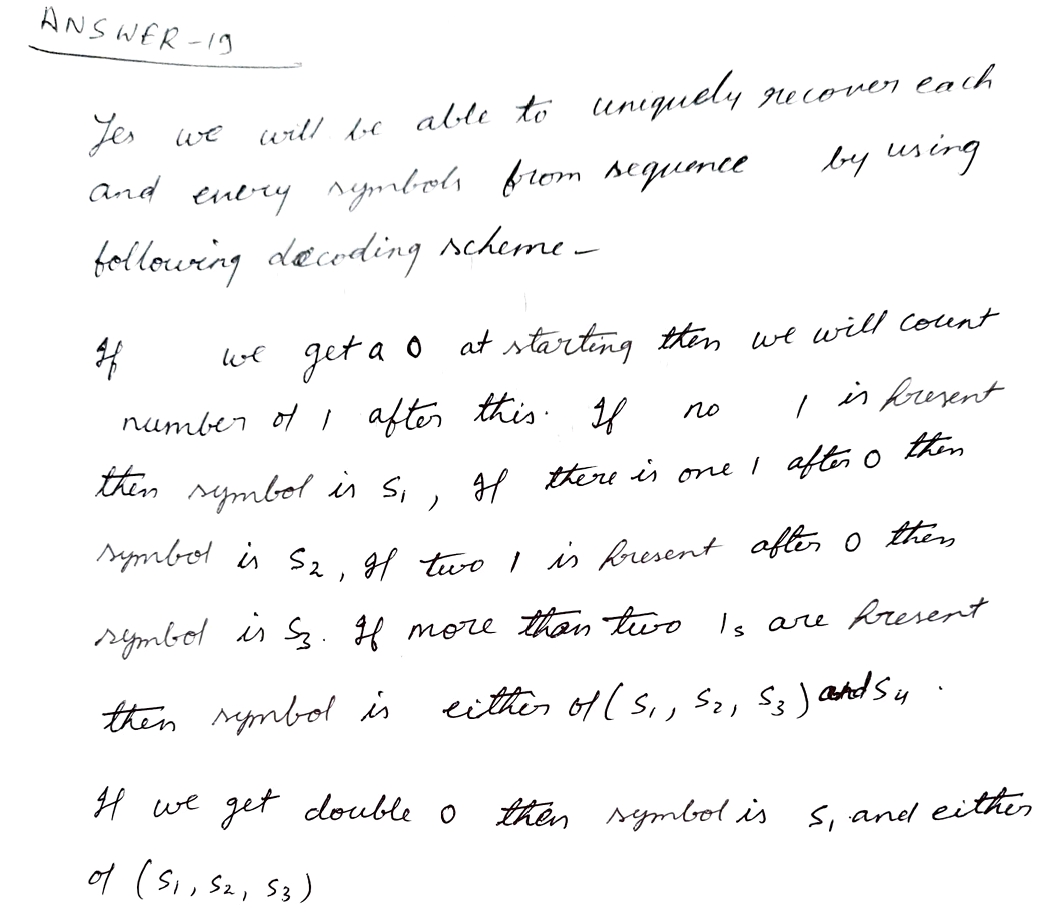 ANSWER-19
Yes we will be able to uniquely recover each
and every symbols from sequence by using
following decoding scheme-
If we get a 0 at starting then we will count
number of 1 after this. If no 1 is present
then symbol is S₁, If there is one 1 after 0 then
symbol is S₂, If two 1 is present after 0 then
symbol is S₃. If more than two 1s are present
then symbol is either of (S₁, S₂, S₃) and S₄.
If we get double 0 then symbol is S₁ and either
of (S₁, S₂, S₃)